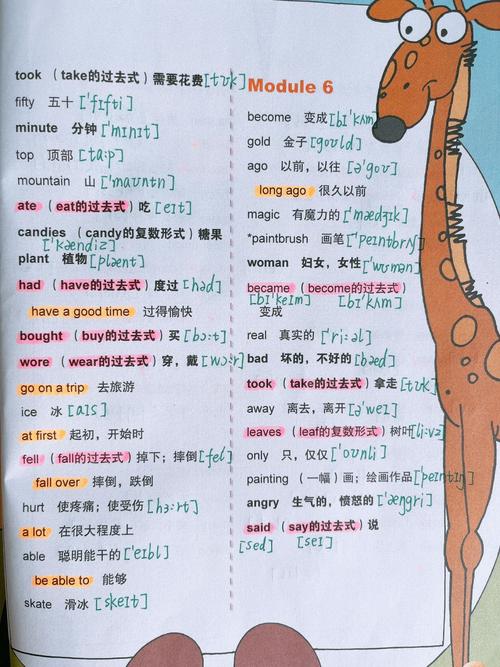 took （take的过去式）需要花费[tʊk]
fifty 五十['fɪfti]
minute 分钟['mɪnɪt]
top 顶部[ta:p]
mountain 山['maʊntn]
ate （eat的过去式）吃[eɪt]
candies （candy的复数形式）糖果
['kændiz]
plant 植物[plænt]
had （have的过去式）度过[həd]
have a good time 过得愉快
bought （buy的过去式）买[bɔ:t]
wore （wear的过去式）穿，戴[wɔ:r]
go on a trip 去旅游
ice 冰[aɪs]
at first 起初，开始时
fell （fall的过去式）掉下；摔倒[fel]
fall over 摔倒，跌倒
hurt 使疼痛；使受伤[hɜ:rt]
a lot 在很大程度上
able 聪明能干的['eɪbl]
be able to 能够
skate 滑冰[skeɪt]
Module 6
become 变成[bɪ'kʌm]
gold 金子[goʊld]
ago 以前，以往[ə'goʊ]
long ago 很久以前
magic 有魔力的['mædʒɪk]
*paintbrush 画笔['peɪntbrʌʃ]
woman 妇女，女性['wʊmən]
became （become的过去式）
[bɪ'keɪm] [bɪ'kʌm]
变成
real 真实的['ri:əl]
bad 坏的，不好的[bæd]
took （take的过去式）拿走[tʊk]
away 离去，离开[ə'weɪ]
leaves （leaf的复数形式）树叶[li:vz]
only 只，仅仅['oʊnli]
painting （一幅）画；绘画作品[peɪntɪŋ]
angry 生气的，愤怒的['æŋgri]
said （say的过去式）说
[sed] [seɪ]